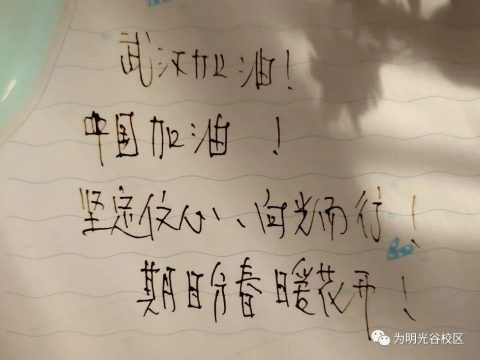 武汉加油！
中国加油！
坚定信心、向光而行！
期盼春暖花开！
为明光谷校区